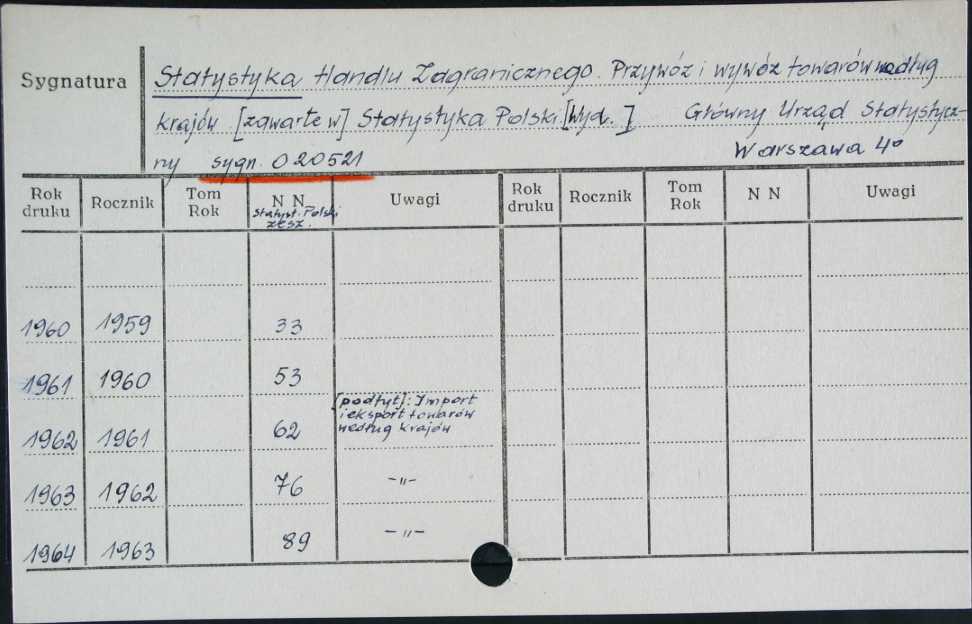 Sygnatura
Statystyka Handlu Zagranicznego. Przywóz i wywóz towarów według
krajów [zawarte w] Statystyka Polski [Wyd. ] Główny Urząd Statystycz-
ny sygn. 020521 Warszawa 4°
Rok druku Rocznik Tom Rok N N Statyst. Polski zesz. Uwagi Rok druku Rocznik Tom Rok N N Uwagi
1960 1959 33
1961 1960 53
1962 1961 62 [podtyt]: Import
i eksport towarów
według krajów
1963 1962 76 -"-
1964 1963 89 -"-